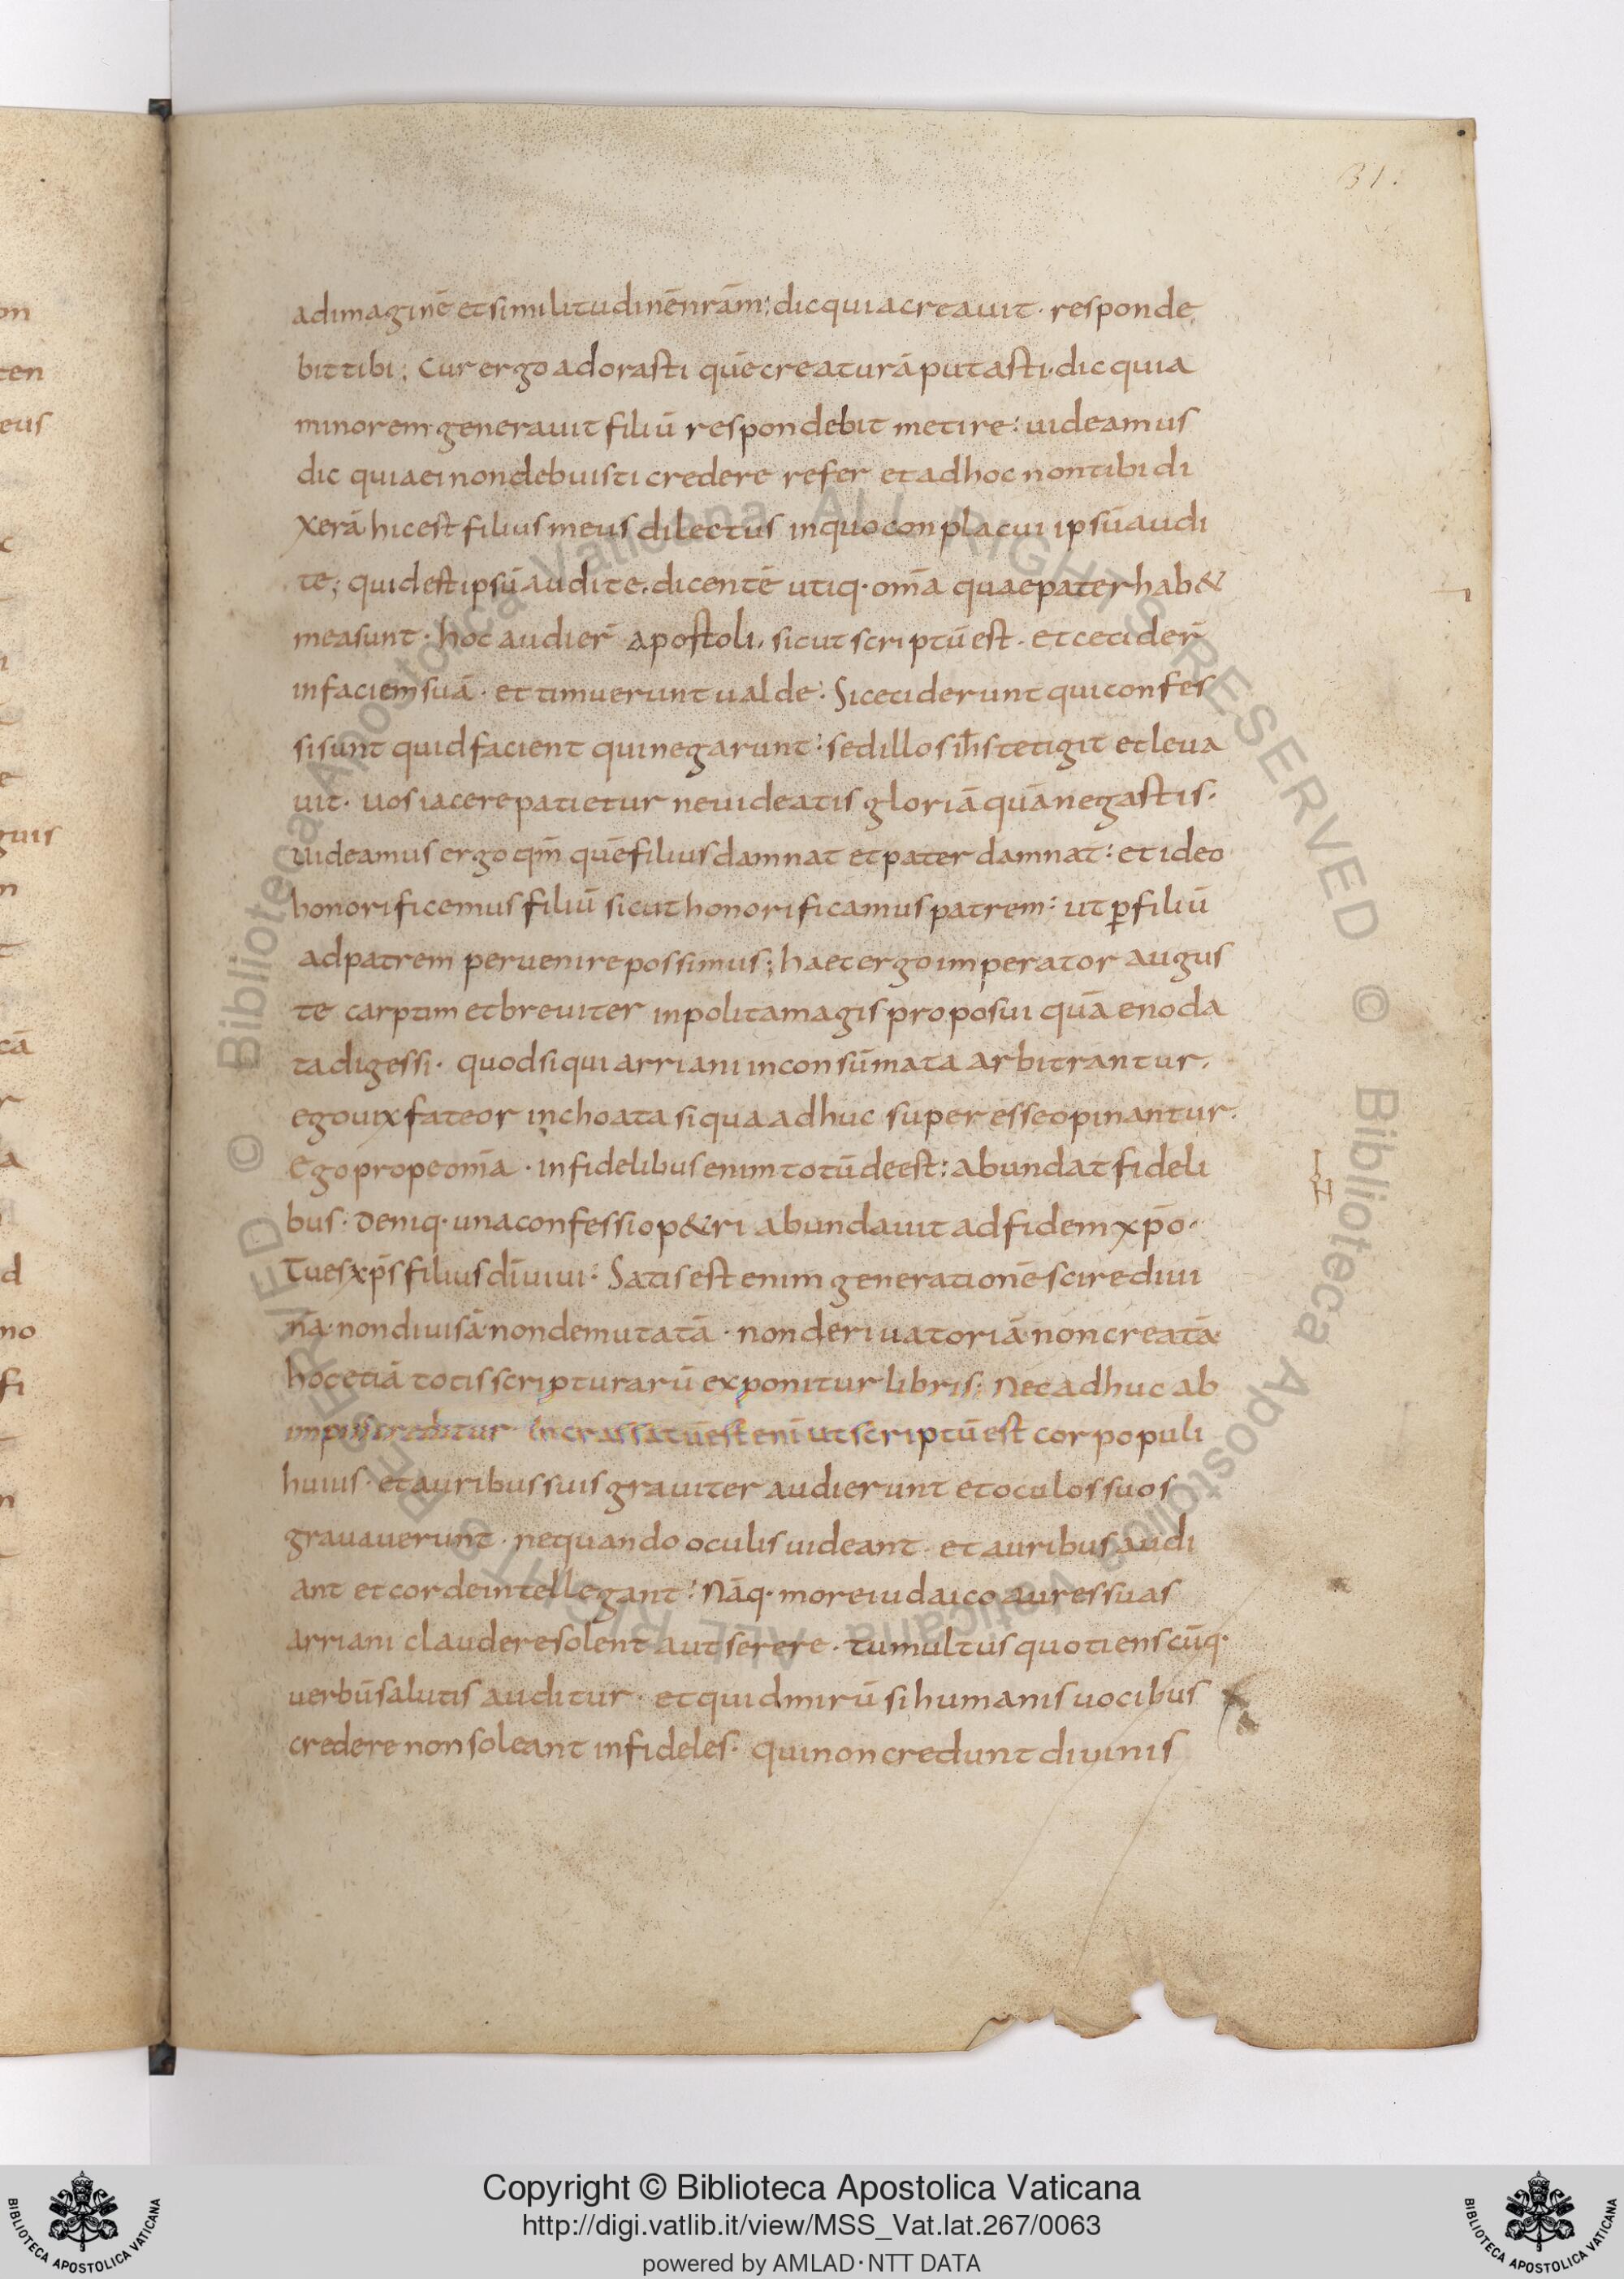 31.
adimaginē etsimilitudinēnrām; dicquiacreauit · responde
bittibi; Curergoadorasti quēcreaturāputasti·dicquia
minorem generauit filiū respondebit metire: uideamus
dic quiaeinondebuisti credere refer etadhoc nontibidi
xerā hicest filius meus dilectus inquoconplacui ipsūaudi
te; quidestipsū audite. dicentē utiq· om̄a quaepaterhab&
measunt · hoc audier̄ apostoli, sicut scriptū est · et cecider̄
infaciemsuā · et timuerunt ualde: Siceciderunt quiconfes
sisunt quidfacient quinegarunt: sedillosih̄stetigit etleua
uit · uosiacerepatietur neuideatis gloriāquānegastis·
uideamus ergo qm̄ quēfiliusdamnat etpaterdamnat: etideo
honorificemus filiū sicut honorificamus patrem: ut p̲filiū
adpatrem peruenirepossimus; haecergoimperator augus
te carptim etbreuiter inpolitamagis proposui quā enoda
tadigessi · quodsiqui arriani inconsūmata arbitrantur.
egouixfateor inchoata siquaadhuc superesseopinantur.
Egopropeom̄a · infidelibusenimtotūdeest: abundatfideli
bus · Deniq· unaconfessiop&ri abundauit adfidem xp̄o·
Tuesxp̄s filiusdīuiui: Satisestenim generationēscirediui
nā·nondiuisā·nondemutatā · nonderiuatoriā·noncreatā·
hocetiā totisscripturarū exponitur libris; Necadhuc ab
impiiscreditur· Incrassatūestenī utscriptūest corpopuli
huius · etauribussuisgrauiter audierunt etoculossuos
grauauerunt · nequando oculis uideant · et auribusaudi
ant etcordeintellegant: Nāq· moreiudaico auressuas
arriani claudere solent autserere · tumultus quotienscūq·
uerbūsalutis auditur · etquidmirū sihumanisuocibus
credere nonsoleant infideles · quinoncreduntdiuinis
Copyright © Biblioteca Apostolica Vaticana
http://digi.vatlib.it/view/MSS_Vat.lat.267/0063
powered by AMLAD · NTT DATA
BIBLIOTECA APOSTOLICA VATICANA
BIBLIOTECA APOSTOLICA VATICANA
© Biblioteca Apostolica Vaticana ALL RIGHTS RESERVED
© Biblioteca Apostolica Vaticana ALL RIGHTS RESERVED